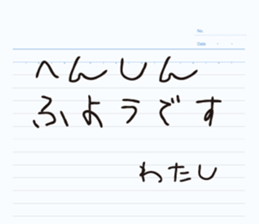 No.
Date ・ ・
へんしん
ふようです
わたし